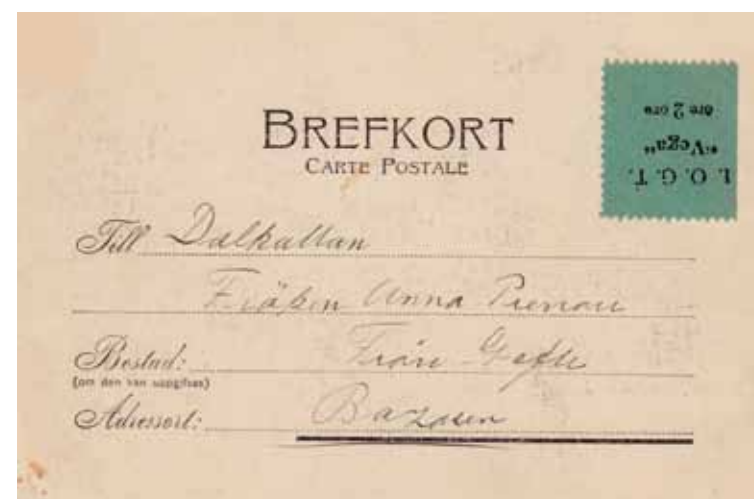 BREFKORT
CARTE POSTALE
I. O. G. T.
"Vega"
öre 2 öre
Till Dalkullan
Fröken Anna
Bostad: Från Gefle
(om den kan uppgifvas)
Adressort: Bazaren